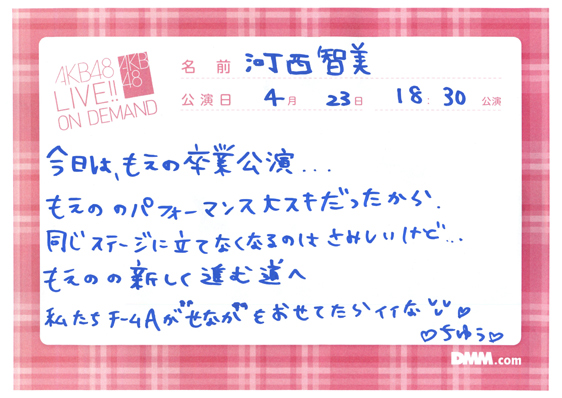 AKB48
LIVE!!
ON DEMAND
AKB
48
名前 河西智美
公演日 4月 23日 18:30 公演
今日は、もえの卒業公演...
もえののパフォーマンス大スキだったから.
同じステージに立てなくなるのはさみしいけど...
もえのの新しく進む道へ
私たちチームAが"せなが"をおせてたらイイな
♡ちゆう♡
DMM.com